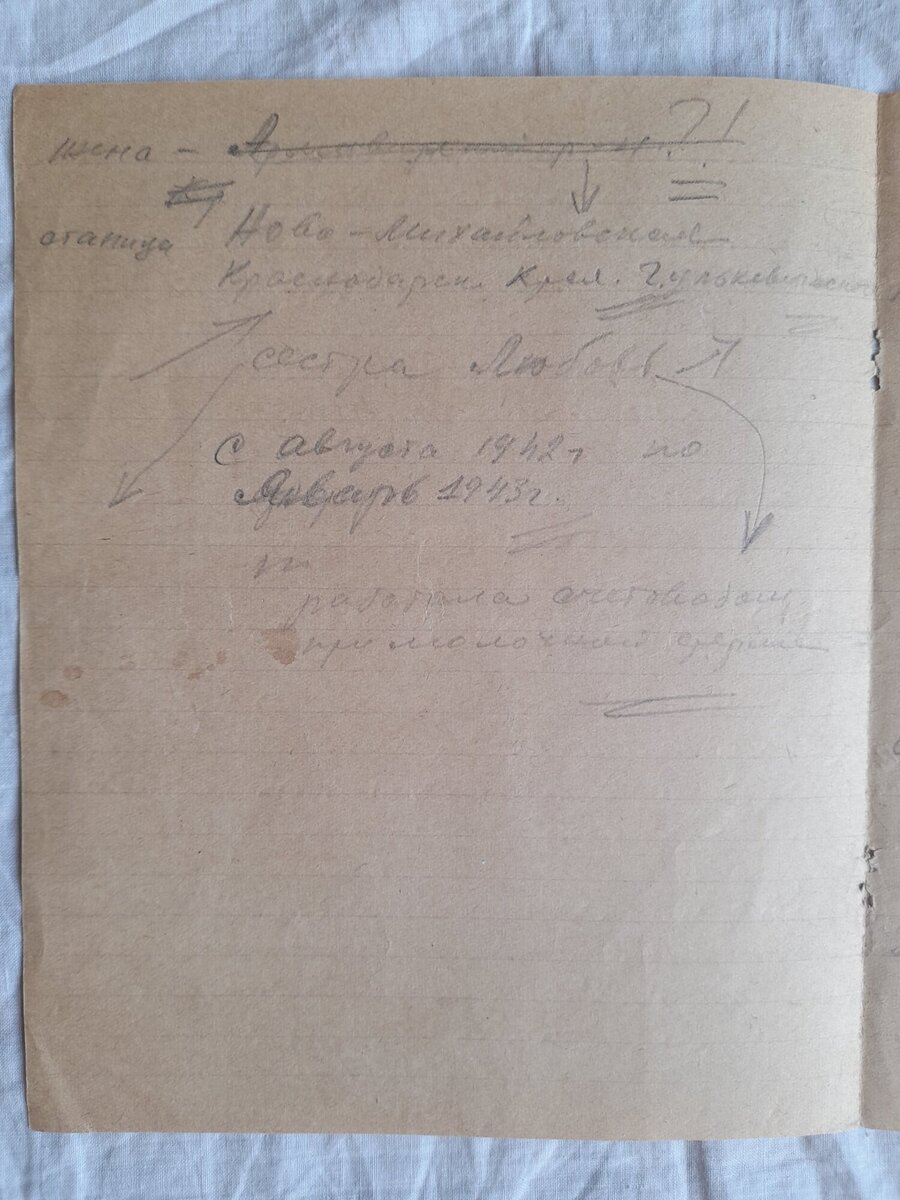 жена -
станица Ново-Михайловская
Краснодарск. Края. Гулькевическ
сестра Любовь
с августа 1942г по
Январь 1943г.
работала счетоводом
при молочной ферме